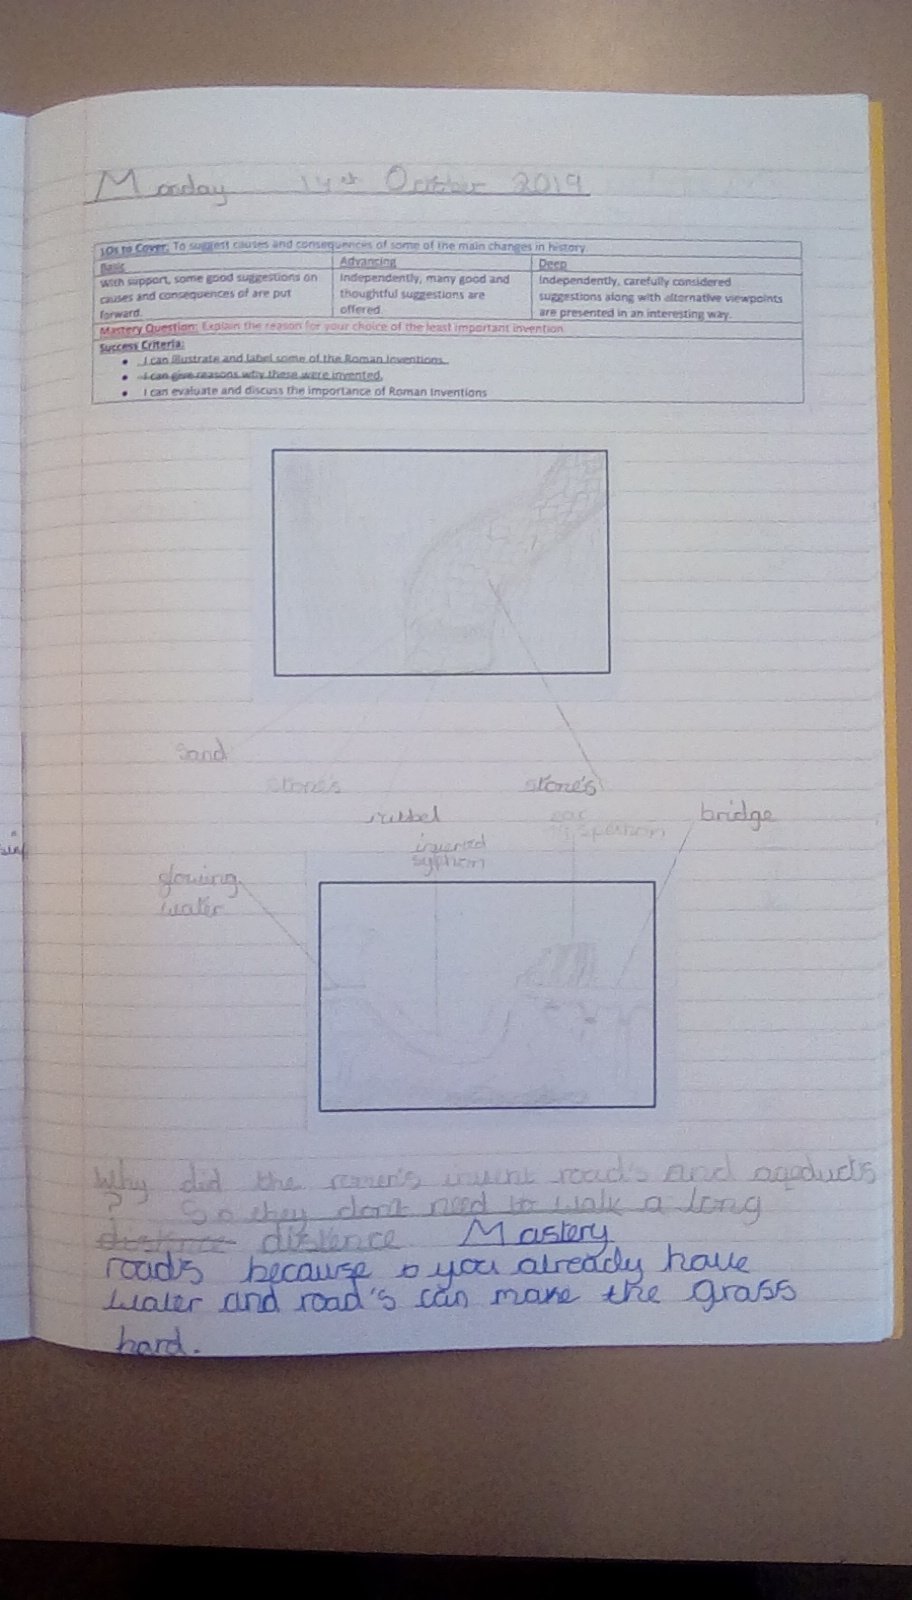 Monday 14st October 2019
LOs to Cover: To suggest causes and consequences of some of the main changes in history.
Basic
Advancing
Deep
With support, some good suggestions on
causes and consequences of are put
forward.
Independently, many good and
thoughtful suggestions are
offered.
Independently, carefully considered
suggestions along with alternative viewpoints
are presented in an interesting way.
Mastery Question: Explain the reason for your choice of the least important invention
Success Criteria:
I can illustrate and label some of the Roman Inventions.
I can give reasons why these were invented.
I can evaluate and discuss the importance of Roman Inventions
sand
stone's
stone's
rubbel
bridge
syphon
water
Why did the romen's invent road's and aqeducts
? So they don't need to walk a long
distence distence Mastery
roads because you already have
water and road's can make the grass
hard.